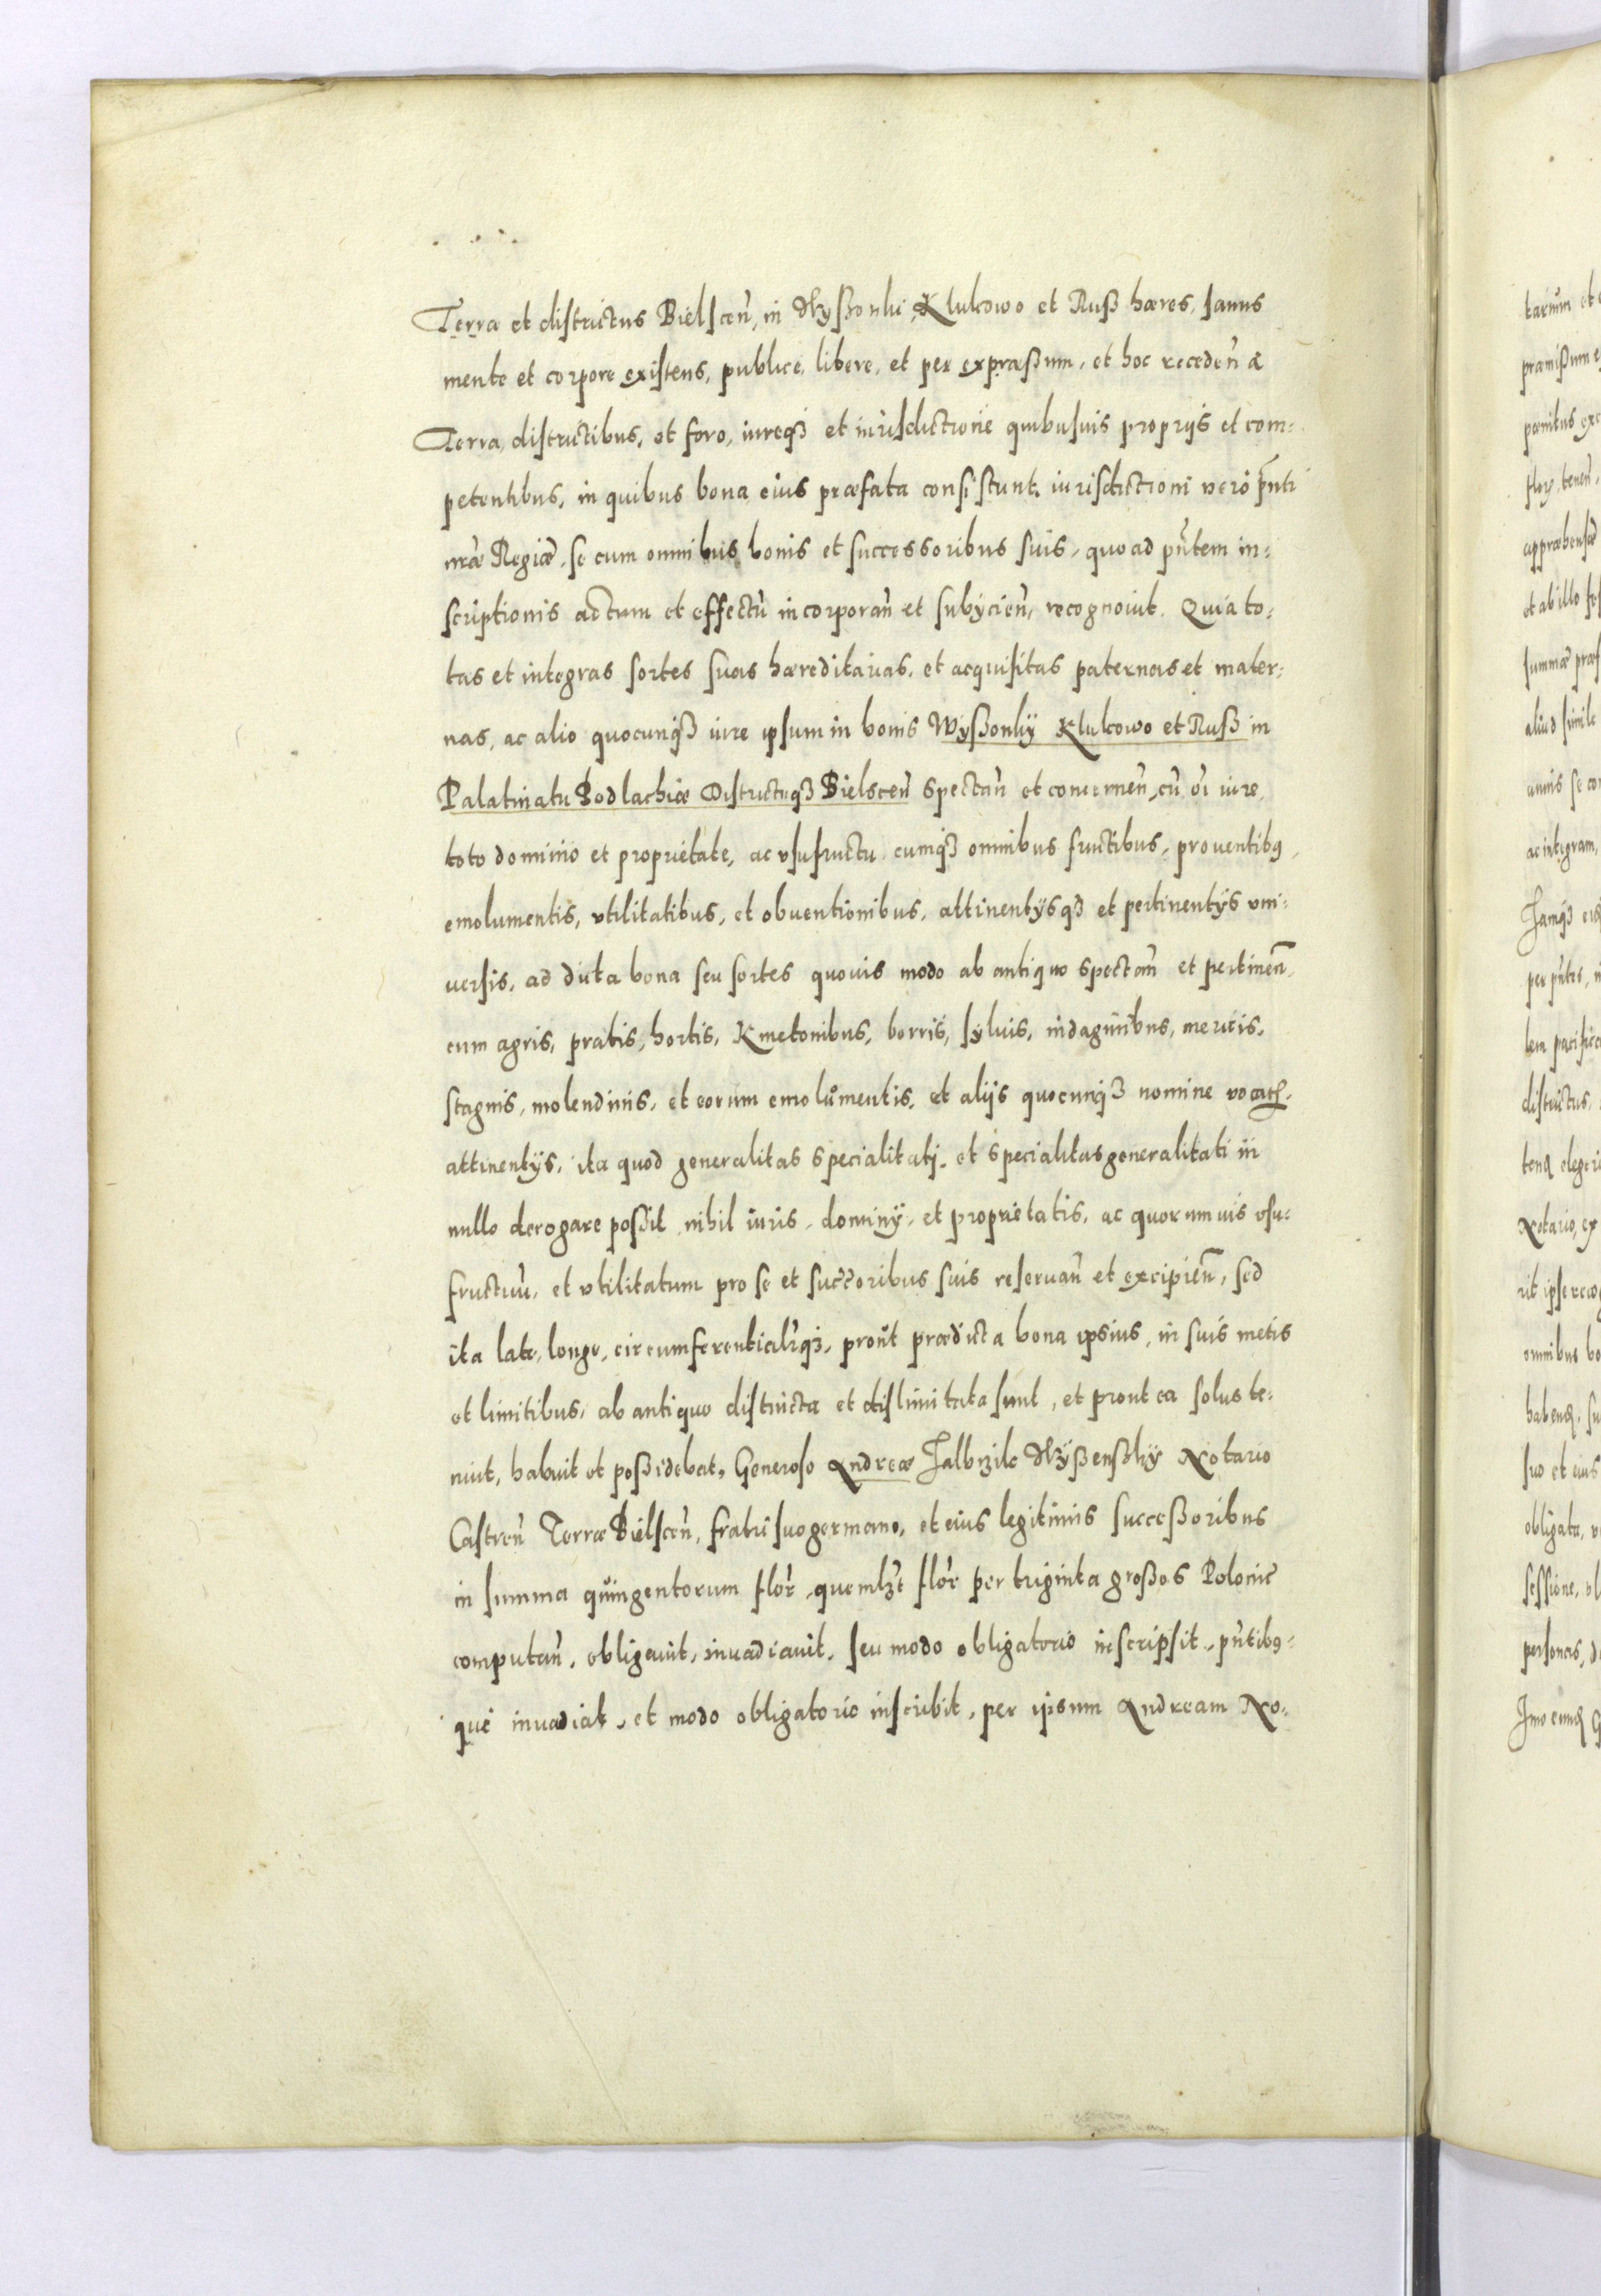 Terra et districtus Bielscen̄, in Wyßonki Klukowo et Ruß hæres, sanus
mente et corpore existens, publice, libere, et per expræßum, et hoc receden̄ a
Terra, districtibus, et foro, iureqꝫ et iurisdictione quibusuis proprijs et com⸗
petentibus, in quibus bona eius præfata consistunt, iurisdictioni vero pn̄ti
nr̄æ Regiæ, se cum omnibus bonis et successoribus suis, quoad pn̄tem in⸗
scriptionis actum et effectū incorporan̄ et subÿcien̄, recognouit. Quia to⸗
tas et integras sortes suas hæreditarias, et acquisitas paternas et mater⸗
nas, ac alio quocunqꝫ iure ipsum in bonis Wyßonkÿ Klukowo et Ruß in
Palatinatu Podlachiæ Districtuqꝫ Bielscen̄ spectan̄ et concernen̄, cū oī iure,
toto dominio et proprietate, ac vsufructu, cumqꝫ omnibus fructibus, prouentibꝰ,
emolumentis, vtilitatibus, et obuentionibus, attinentÿsqꝫ et pertinentÿs vni⸗
uersis, ad dicta bona seu sortes quouis modo ab antiquo spectan̄ et pertinen̄,
cum agris, pratis, hortis, Kmetonibus, borris, syluis, indaginibus, mericis,
stagnis, molendinis, et eorum emolumentis, et alijs quocunqꝫ nomine vocat̄,
attinentÿs, ita quod generalitas specialitatj, et specialitas generalitati in
nullo derogare poßit, nihil iuris, dominÿ, et proprietatis, ac quorumuis vsu⸗
fructuū, et vtilitatum pro se et succ̄oribus suis reseruan̄ et excipien̄, sed
ita late, longe, circumferentialr̄qꝫ, prout prædicta bona ipsius, in suis metis
et limitibus, ab antiquo distincta et dislimitata sunt, et prout ea solus te⸗
nuit, habuit et poßidebat, Generoso Andreæ Jalbrzik Wÿßenskÿ Notario
Castren̄ Terræ Bielscen̄, fratri suo germano, et eius legitimis succeßoribus
in summa quingentorum flor̄, quemlꝫt flor̄ per triginta großos Polonic̄
computan̄, obligauit, inuadiauit, seu modo obligatorio inscripsit, pn̄tibꝰ⸗
que inuadiat, et modo obligatorio inscribit, per ipsum Andream No⸗